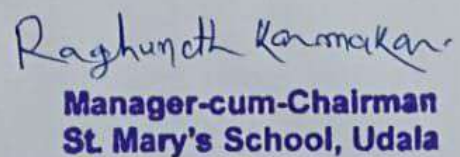 Raghunath Karmakar
Manager-cum-Chairman
St. Mary's School, Udala